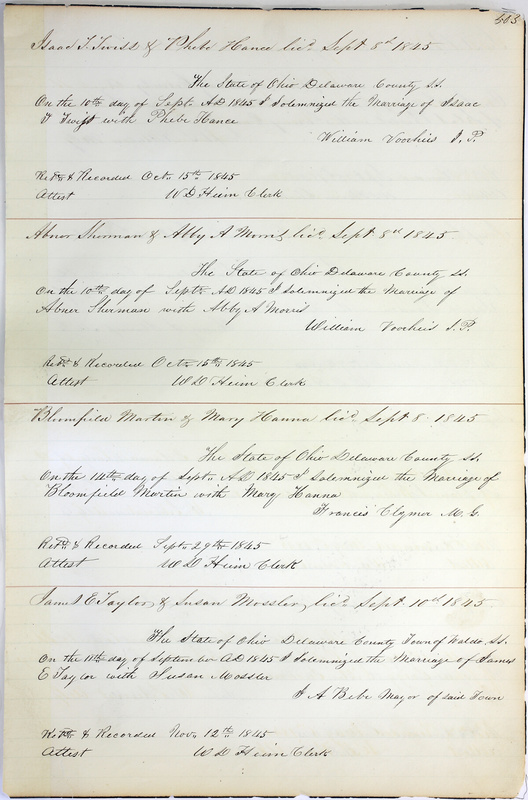 503
Isaac T. Twist & Phebe Hance licd Sept 8th 1845
The State of Ohio Delaware County ss.
On the 10th day of Sept. AD 1845 I Solemnized the Marriage of Isaac
T Twist with Phebe Hance
William Voorhies J. P.
Retd & Recorded Oct. 15th 1845
Attest W D Heim Clerk
Abner Sherman & Abby A Morris licd Sept 8th 1845
The State of Ohio Delaware County ss.
On the 10th day of Sept. AD 1845 I Solemnized the Marriage of
Abner Sherman with Abby A Morris
William Voorhies J. P.
Retd & Recorded Oct. 15th 1845
Attest W D Heim Clerk
Bloomfield Martin & Mary Hanna licd Sept 8 1845
The State of Ohio Delaware County ss.
On the 14th day of Sept. AD 1845 I Solemnized the Marriage of
Bloomfield Martin with Mary Hanna
Francis Clymer M. G.
Retd & Recorded Sept. 29th 1845
Attest W D Heim Clerk
James E Taylor & Susan Mossler licd Sept 10th 1845
The State of Ohio Delaware County Town of Waldo ss.
On the 11th day of September AD 1845 I Solemnized the Marriage of James
E Taylor with Susan Mossler
J A Bebe Mayor of said Town
Retd & Recorded Nov. 12th 1845
Attest W D Heim Clerk